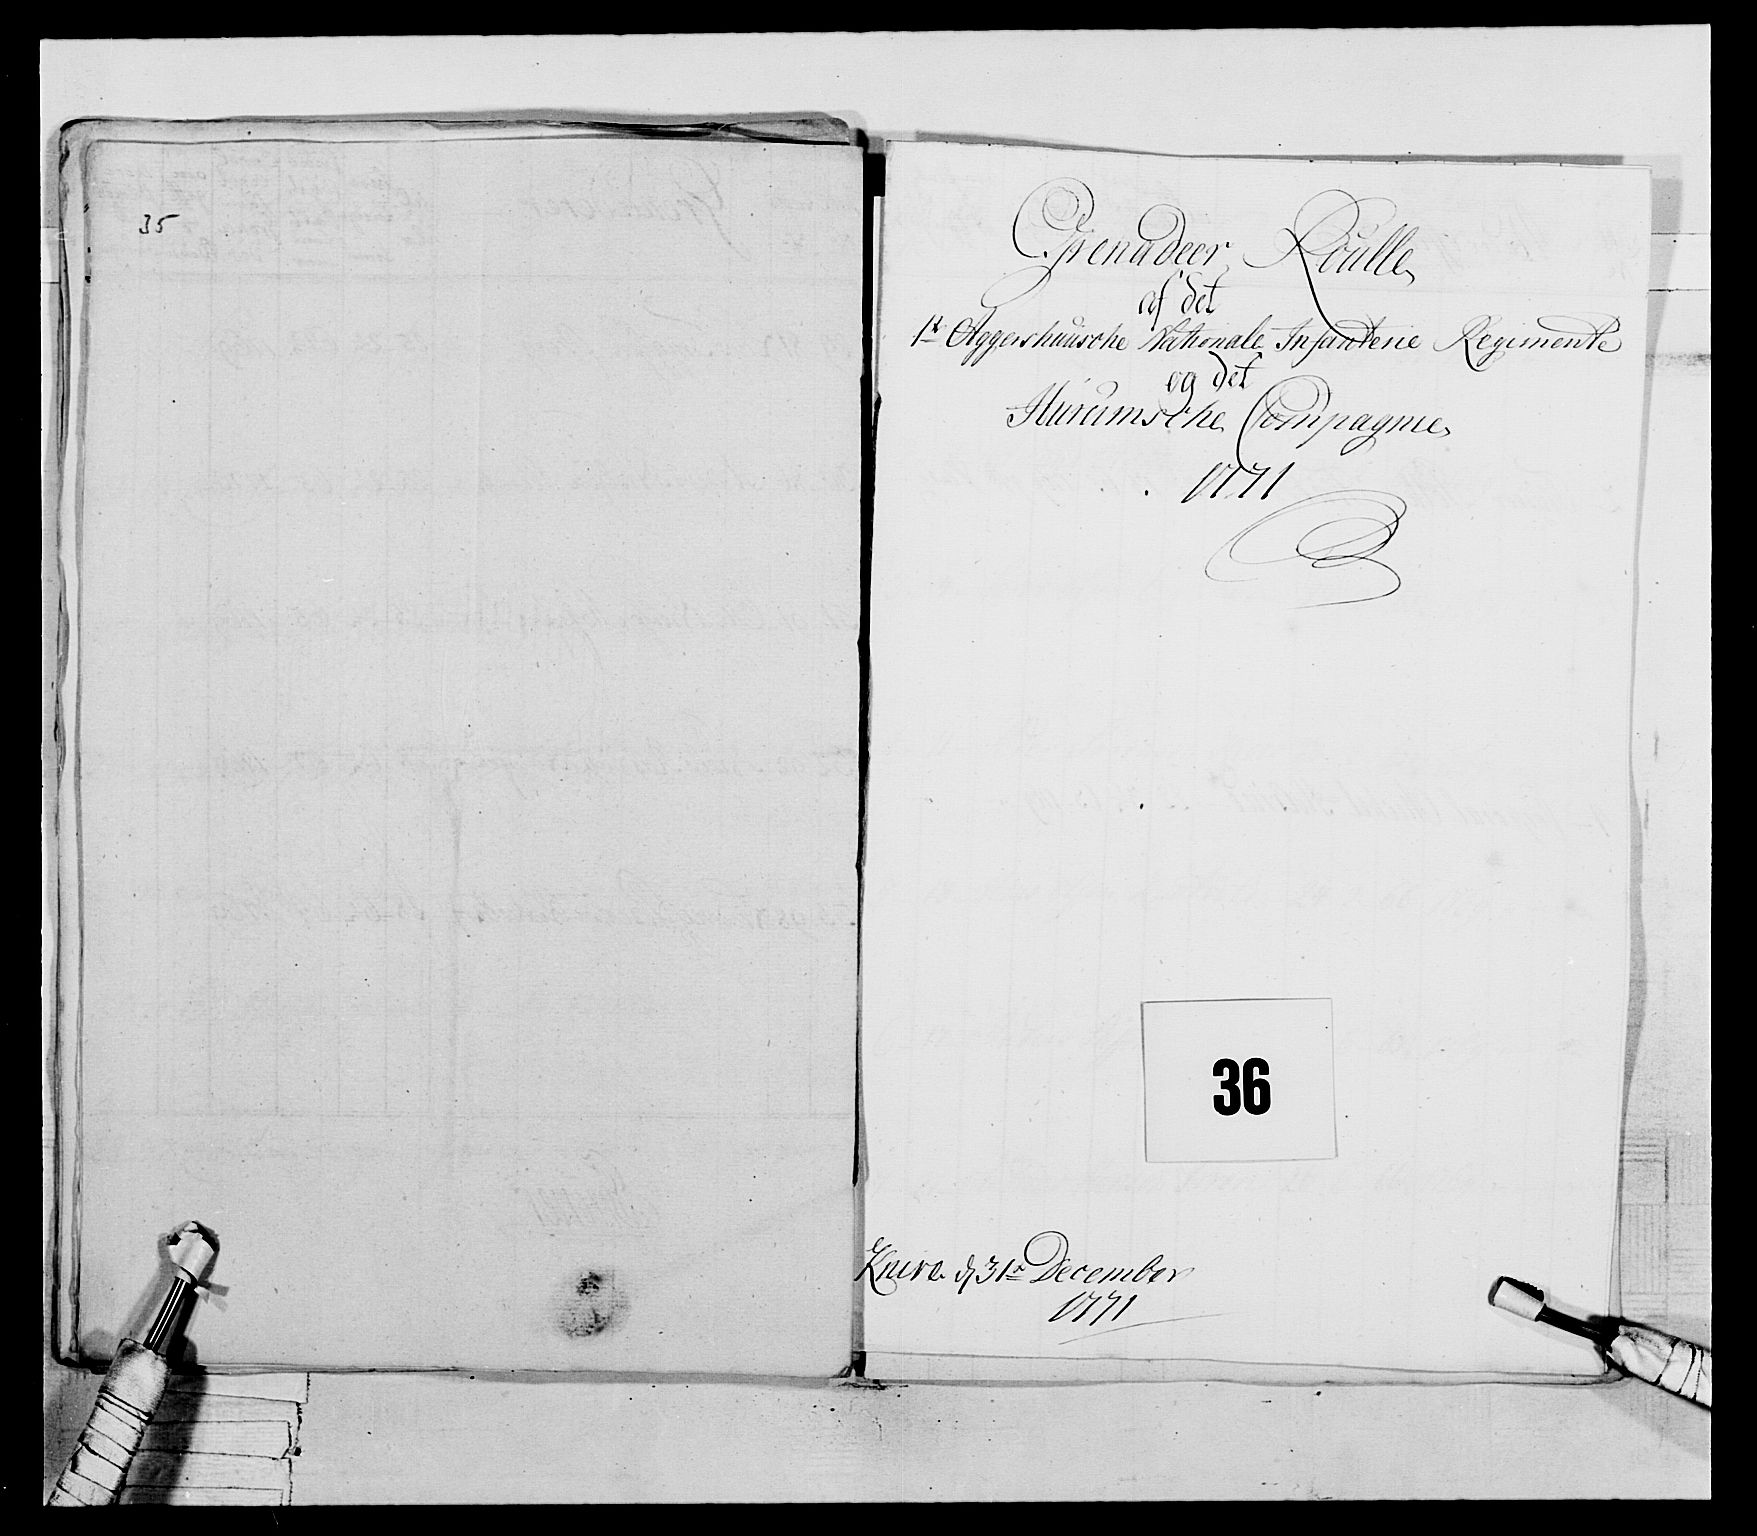 35
Grenadeer Roulle
af det
1ste Aggershuusche Nationale Infanterie Regimente
og det
Hurumsche Compagnie
1771
36
December
1771